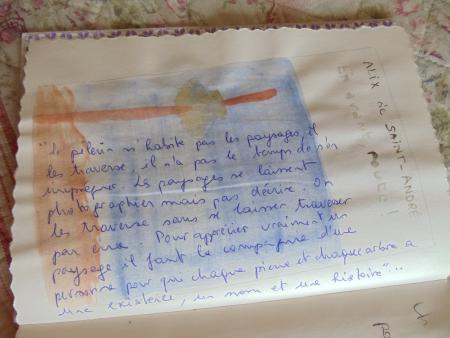 "Le pèlerin n'habite pas les paysages, il
les traverse, il n'a pas le temps de s'en
imprégner. Les paysages se laissent
photographier mais pas décrire. On
les traverse sans se laisser traverser
par eux. Pour apprécier vraiment un
paysage il faut le comprendre d'une
personne pour que chaque pierre et chaque arbre a
une existence, un nom et une histoire"...
ALIX de SAINT-ANDRÉ
En avant, route !